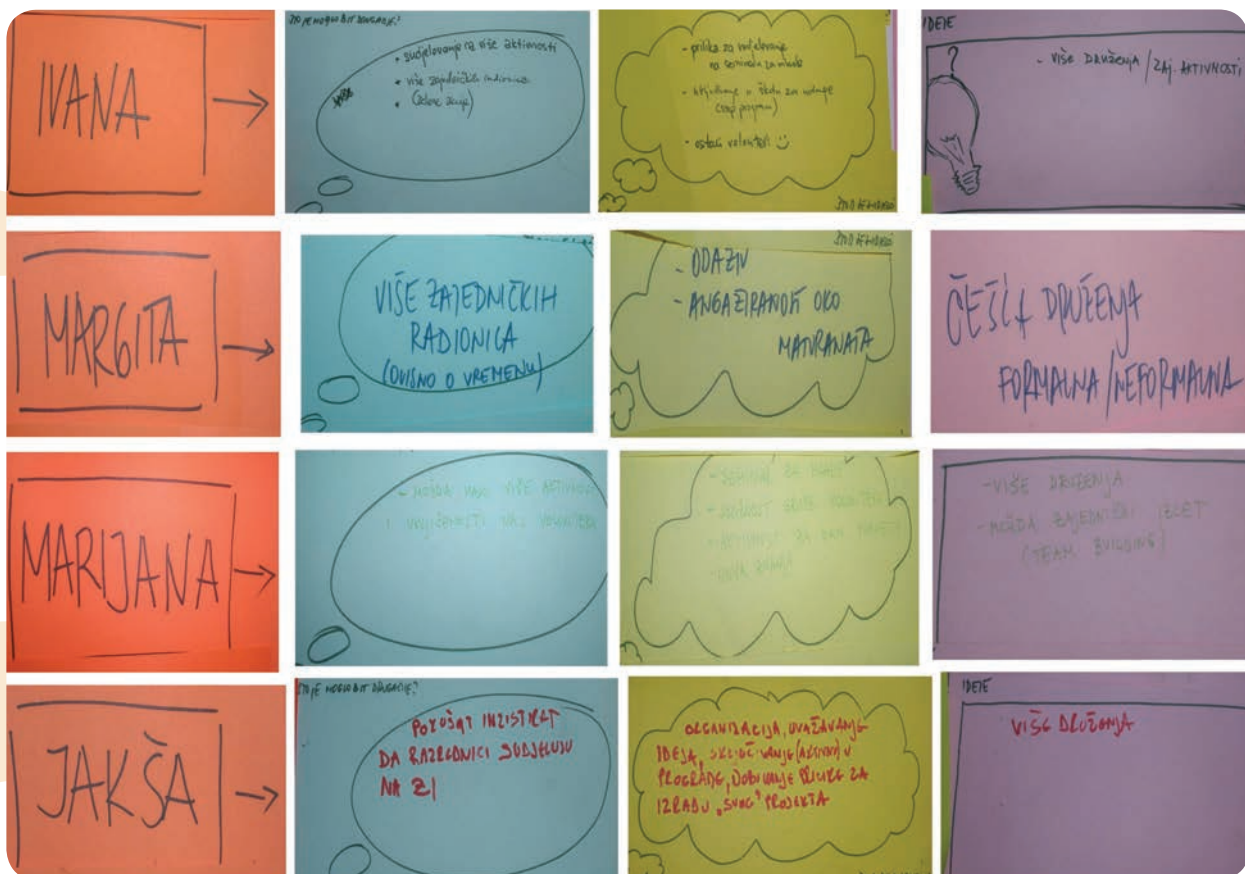 IVANA
ŠTO JE MOGLO BIT DRUGAČIJE?
• sudjelovanje na više aktivnosti
• više zajedničkih radionica
•
- prilika za sudjelovanje
na seminaru za mlade
- uključivanje u školu za udruge
- ostali volonteri
ŠTO JE
IDEJE
?
- VIŠE DRUŽENJA / ZAJ. AKTIVNOSTI
MARGITA
VIŠE ZAJEDNIČKIH
RADIONICA
(OVISNO O VREMENU)
ŠTO JE
- ODAZIV
- ANGAŽIRANOST OKO
MATURANATA
ČEŠĆA DRUŽENJA
FORMALNA/NEFORMALNA
MARIJANA
- MOŽDA MALO VIŠE AKTIVNOSTI
I UKLJUČENOSTI NAS VOLONTERA
- SEMINAR ZA MLADE
- NOVA ZNANJA
- VIŠE DRUŽENJA
- MOŽDA ZAJEDNIČKI IZLET
(TEAM BUILDING)
JAKŠA
ŠTO JE MOGLO BIT DRUGAČIJE?
POKUŠAT INZISTIRAT
DA RAZREDNICI SUDJELUJU
NA ZI
ORGANIZACIJA, UVAŽAVANJE
IDEJA, UKLJUČIVANJE (AKTIVNO) U
PROGRAME, DOBIVANJE PRILIKE ZA
IZRADU „SVOG" PROJEKTA
IDEJE
VIŠE DRUŽENJA